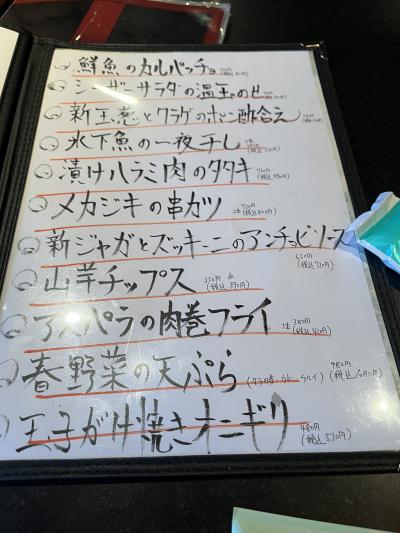 鮮魚のカルパッチョ
シーザーサラダの温玉のせ
新玉葱とクラゲのポン酢合え
氷下魚の一夜干し
漬けハラミ肉のタタキ
メカジキの串カツ
新ジャガとズッキーニのアンチョビソース
山芋チップス 350円 (税込390円)
アスパラの肉巻フライ 1本 380円
春野菜の天ぷら 980円
玉子がけ焼きオニギリ 480円 (税込530円)